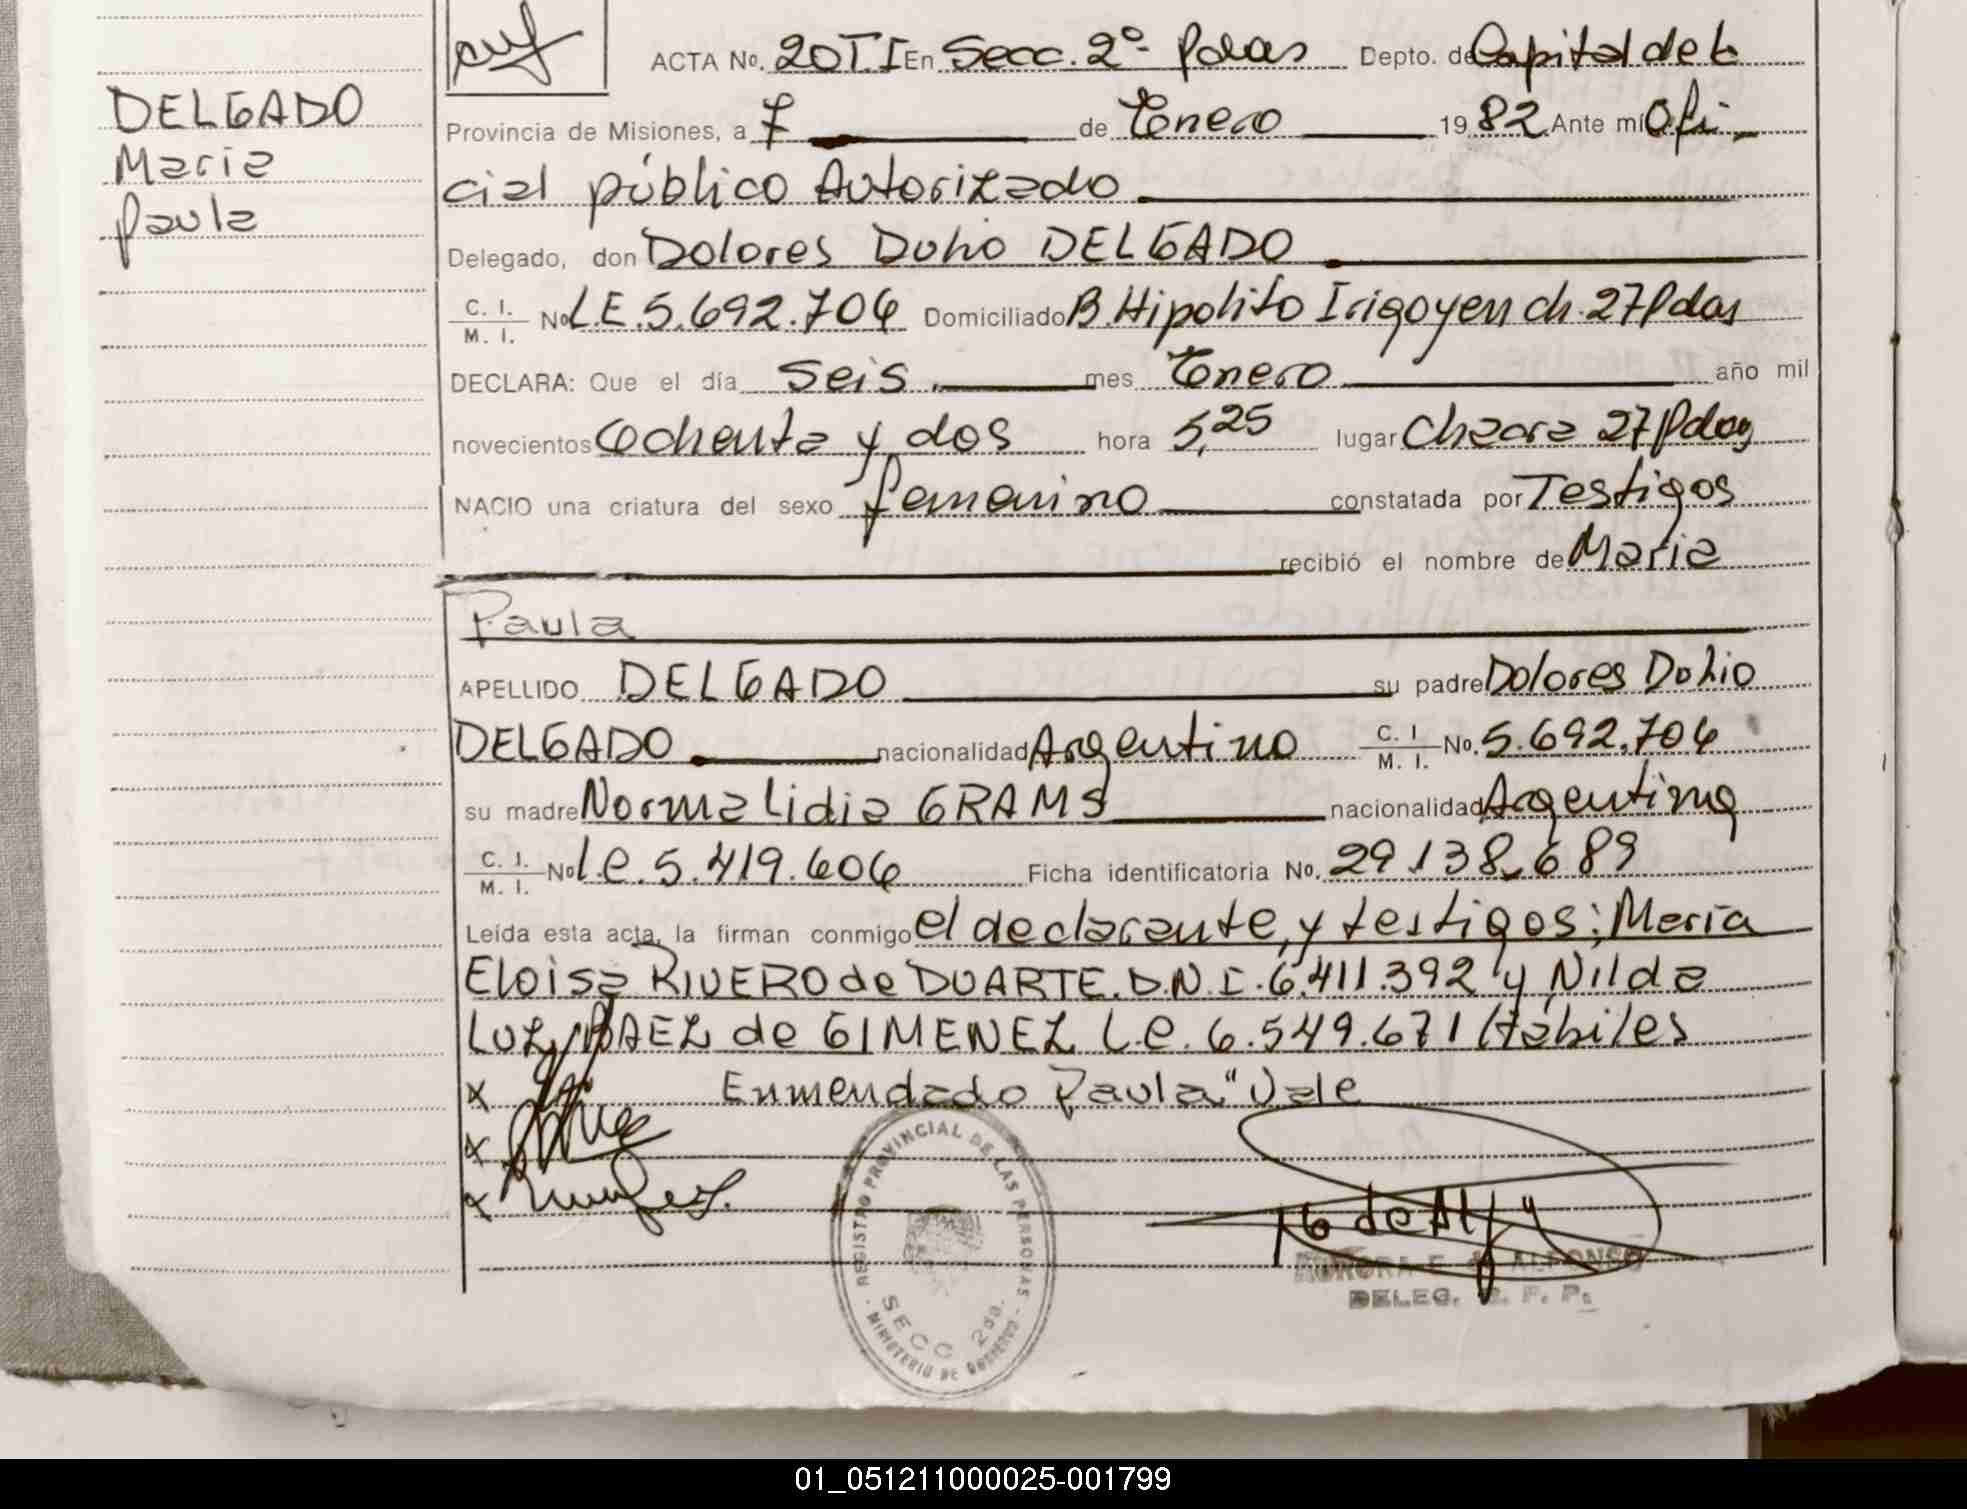 DELGADO
Maria
Paula
ACTA No. 20T.I En Secc. 2º Pdas Depto. de Capital de la
Provincia de Misiones, a 7 de Enero 1982 Ante mí Ofi-
cial público Autorizado
Delegado, don Dolores Dolio DELGADO
C. I. / M. I. No L.E. 5.692.706 Domiciliado B. Hipolito Irigoyen ch. 27 Pdas
DECLARA: Que el día seis mes Enero año mil
novecientos ochenta y dos hora 5,25 lugar Chacra 27 Pdas
NACIO una criatura del sexo femenino constatada por Testigos
recibió el nombre de Maria
Paula
APELLIDO DELGADO su padre Dolores Dolio
DELGADO nacionalidad Argentino C. I / M. I. No. 5.692.706
su madre Norma Lidia GRAMS nacionalidad Argentina
C. I. / M. I. No L.C. 5.419.606 Ficha identificatoria No. 29.138.689
Leída esta acta, la firman conmigo el declarante, y testigos; María
Eloisa RIVERO de DUARTE. D.N.I. 6.411.392 y Nilda
LUZ BAEZ de GIMENEZ L.C. 6.549.671 Hábiles
x Enmendado Paula" Vale
x
x
REGISTRO PROVINCIAL DE LAS PERSONAS
SECC 2da.
MINISTERIO DE GOBIERNO
AURORA E. de ALFONSO
DELEG. R. P. P.
01_051211000025-001799